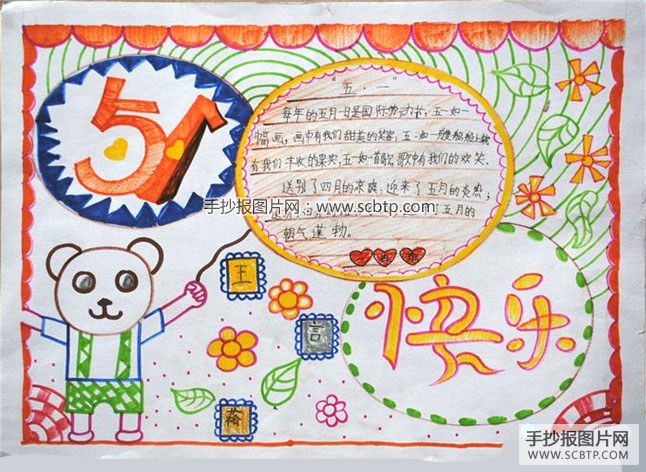 51
五·一
每年的五月一日是国际劳动节,五一如一
幅画,画中有我们甜美的笑容,五一如一艘船船上载
有我们丰收的果实,五一如一首歌,歌中有我们的欢笑.
送别了四月的凉爽,迎来了五月的炎热;
手抄报图片网 www.scbtp.com
五月的
朝气蓬勃。
王
高
快乐
手抄报图片网
WWW.SCBTP.COM